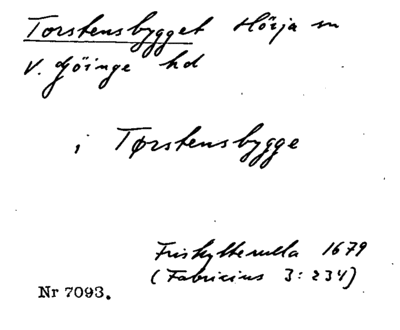 Torstensbygget Hörja sn
V. Göinge hd
i Tørstensbygge
Friskytterulla 1679
(Fabricius 3:234)
Nr 7093.